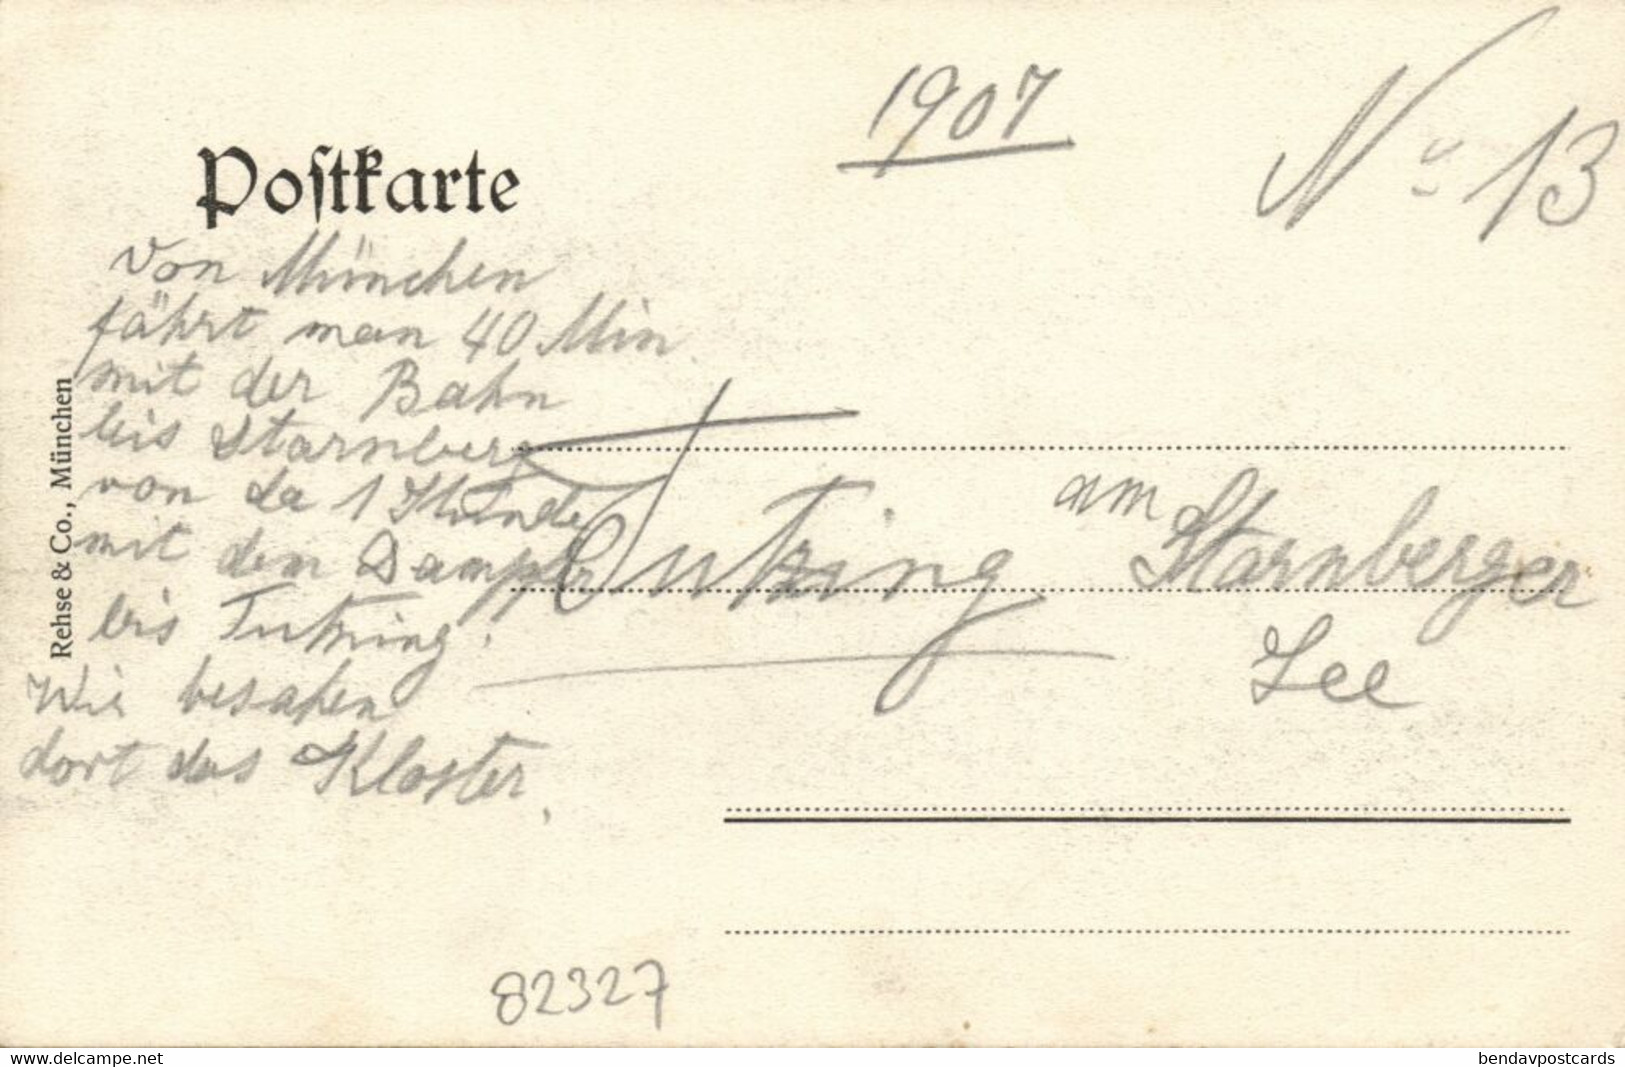 1907
No 13
Postkarte
Von München
fährt man 40 Min.
mit der Bahn
bis Starnberg
von da 1 Stunde
mit dem Dampfer
bis Tutzing.
Wir besahen
dort das Kloster.
Tutzing am Starnberger
See
Rehse & Co., München
82327
www.delcampe.net
bendavpostcards